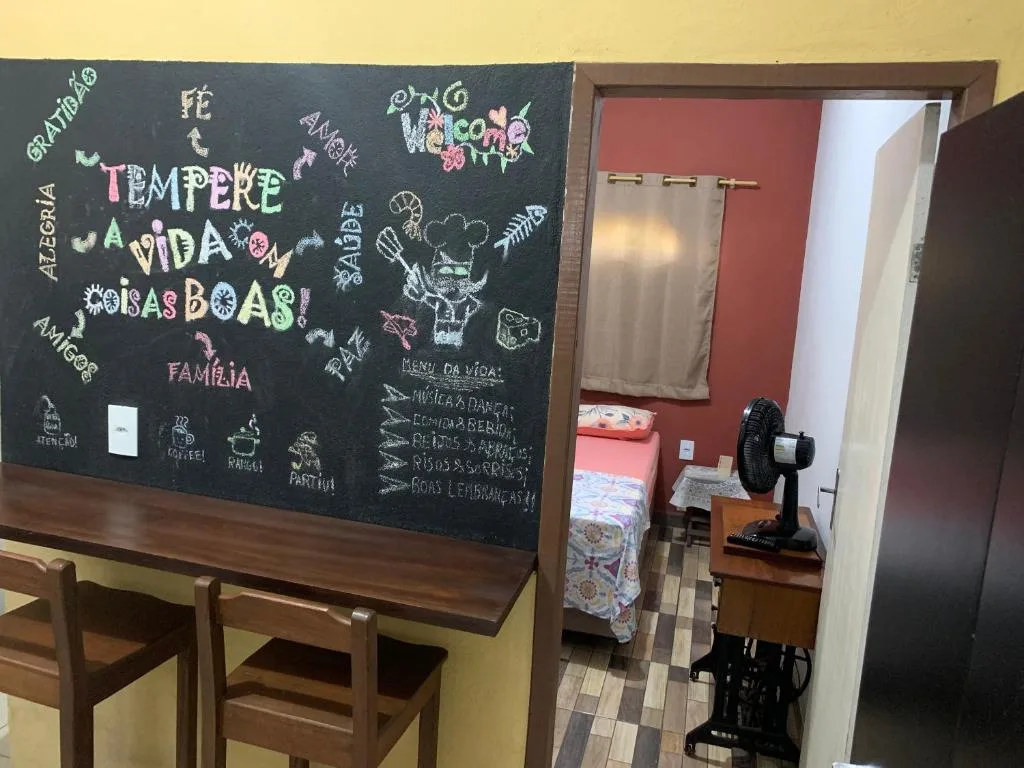 GRATIDÃO
FÉ
AMOR
Welcome
TEMPERE
A VIDA COM
COISAS BOAS!
ALEGRIA
SAÚDE
AMIGOS
PAZ
FAMÍLIA
MENU DA VIDA:
MÚSICA & DANÇA;
COMIDA & BEBIDA;
BEIJOS & ABRAÇOS;
RISOS & SORRISOS;
BOAS LEMBRANÇAS!!
ATENÇÃO!
COFFEE!
RANGO!
PARTIU!